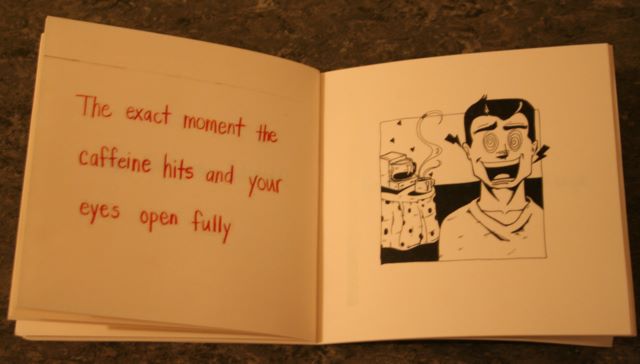 The exact moment the
caffeine hits and your
eyes open fully